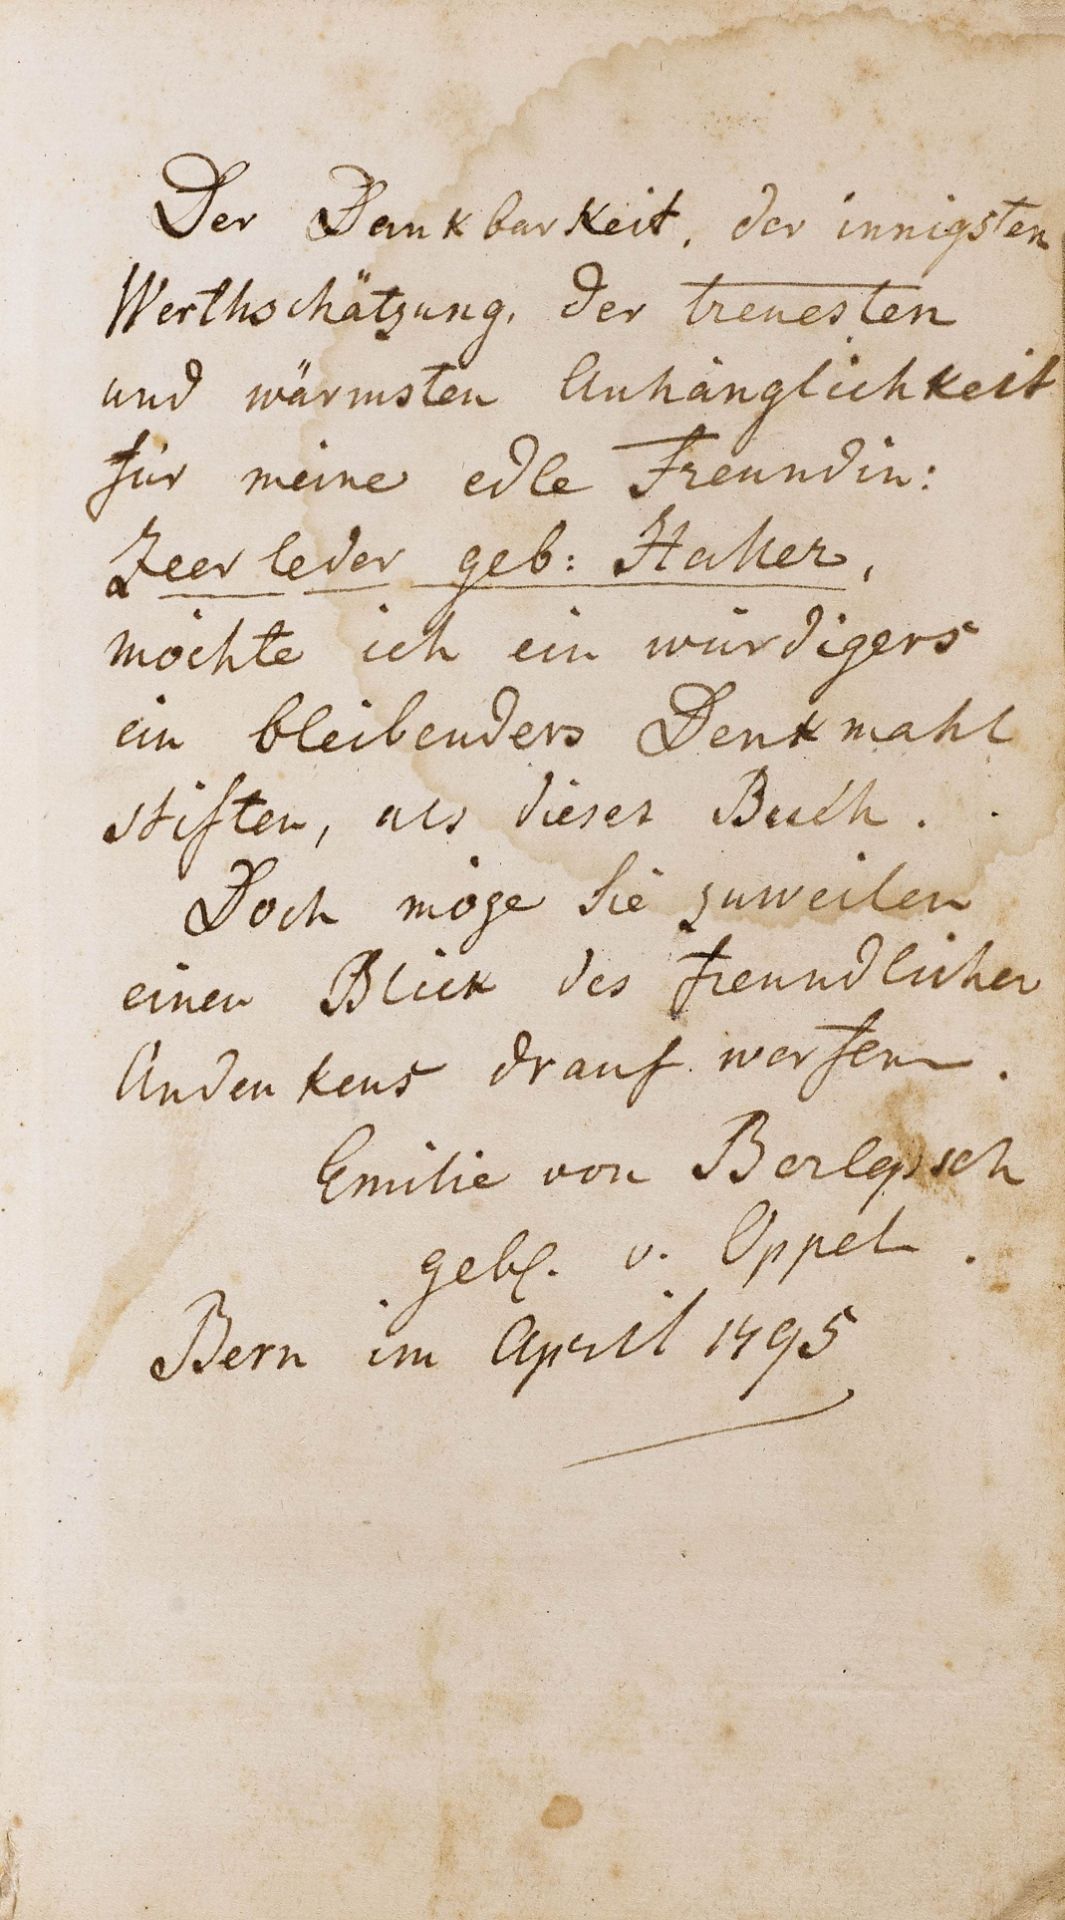 Der Dankbarkeit, der innigsten
Werthschätzung, der treuesten
und wärmsten Anhänglichkeit
für meine edle Freundin:
Zeerleder geb: Haller,
möchte ich ein würdigers
ein bleibenders Denkmahl
stiften, als dieses Buch.
Doch möge Sie zuweilen
einen Blick des freundlichen
Andenkens drauf werfen.
Emilie von Berlepsch
geb. v. Oppel.
Bern im April 1795